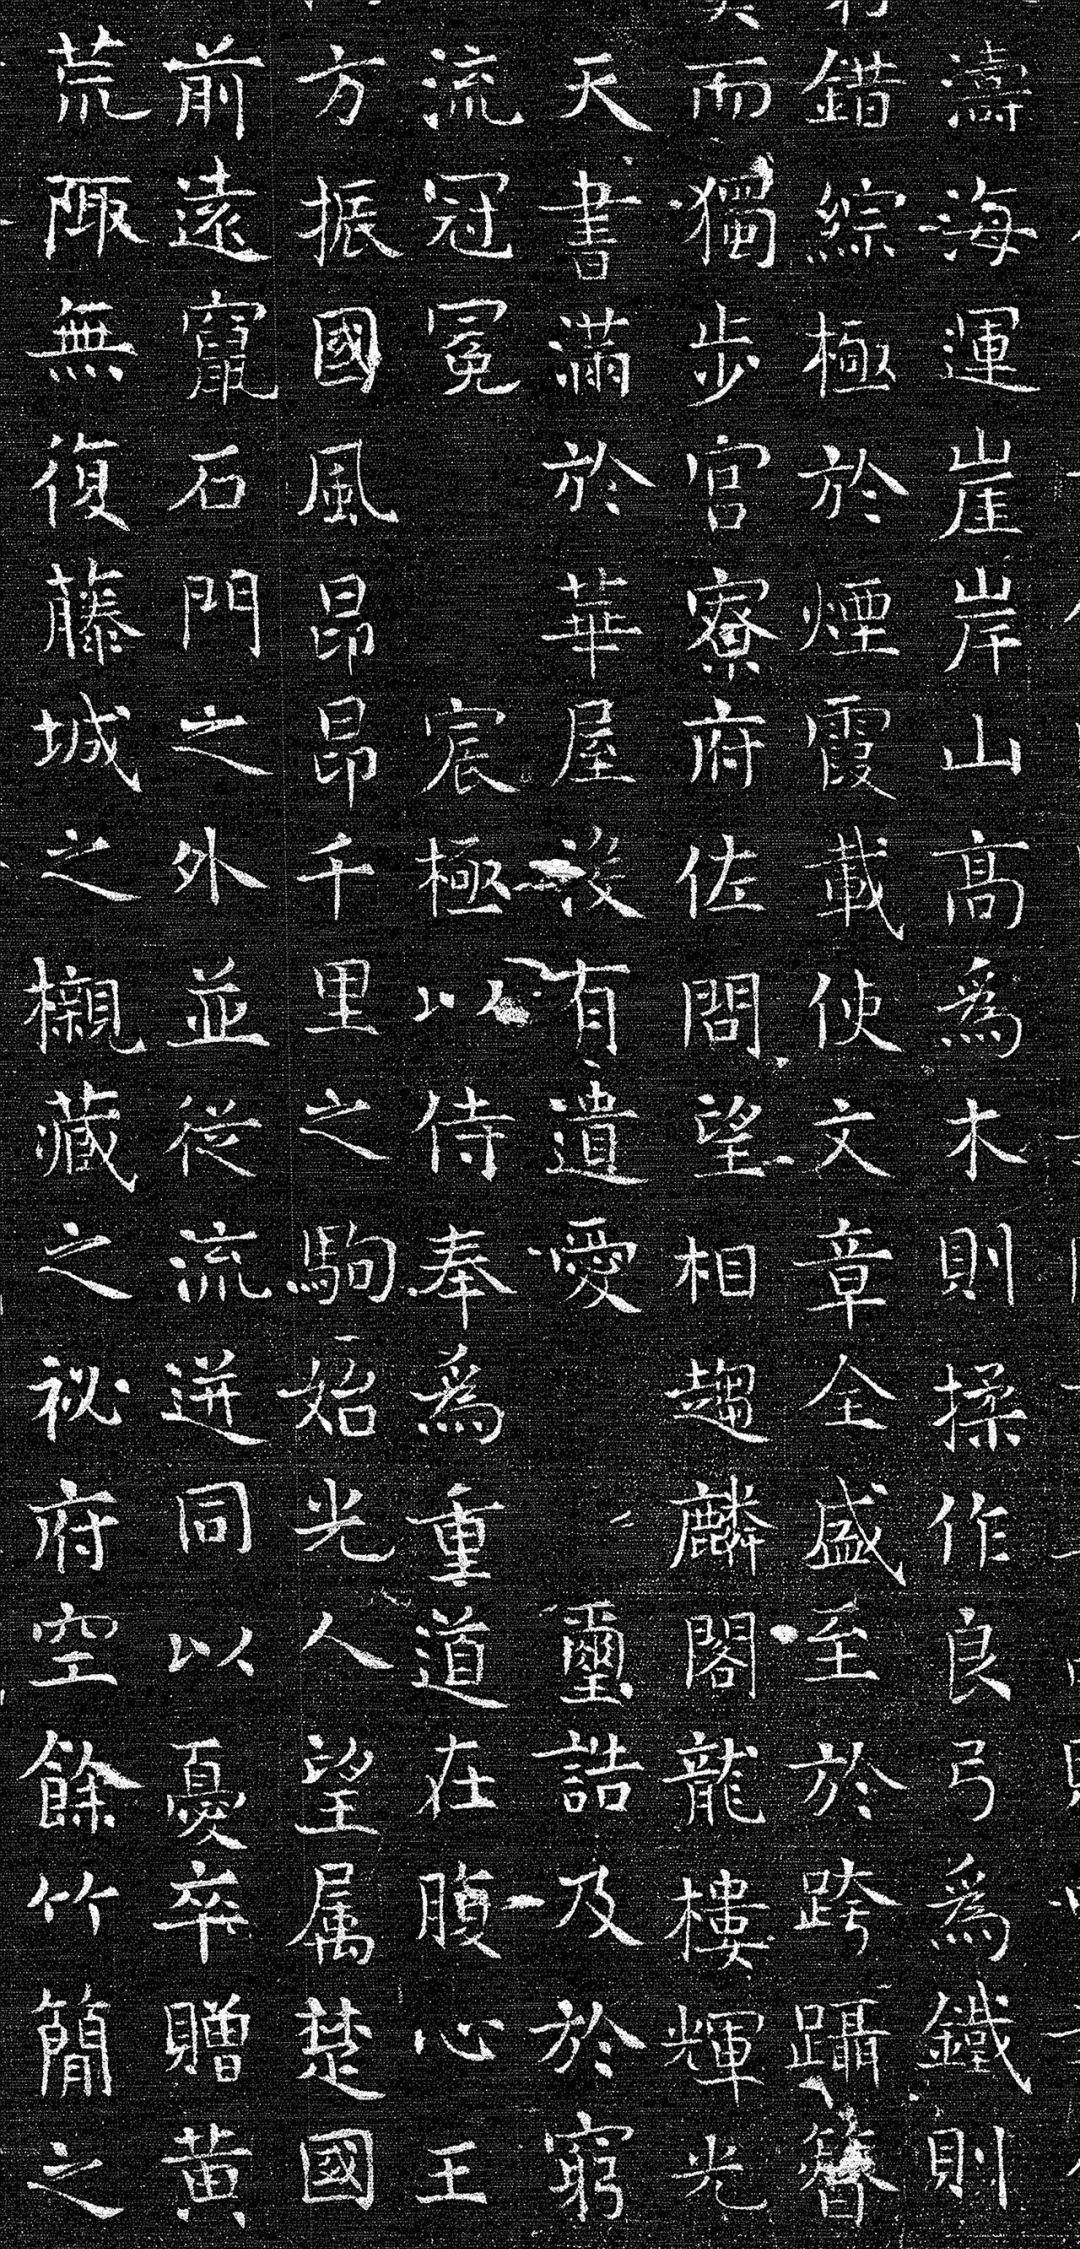 濤海運崖岸山高為木則揉作良弓為鐵則
錯綜極於煙霞載使文章全盛至於跨躡簪
而獨步宮寮府佐問望相趨麟閣龍樓輝光
天書滿於華屋沒有遺愛璽誥及於窮
流冠冕宸極以侍奉為重道在腹心王
方振國風昂昂千里之駒始光人望属楚國
前遠竄石門之外並從流迸同以憂卒贈黃
荒陬無復藤城之櫬藏之祕府空餘竹簡之